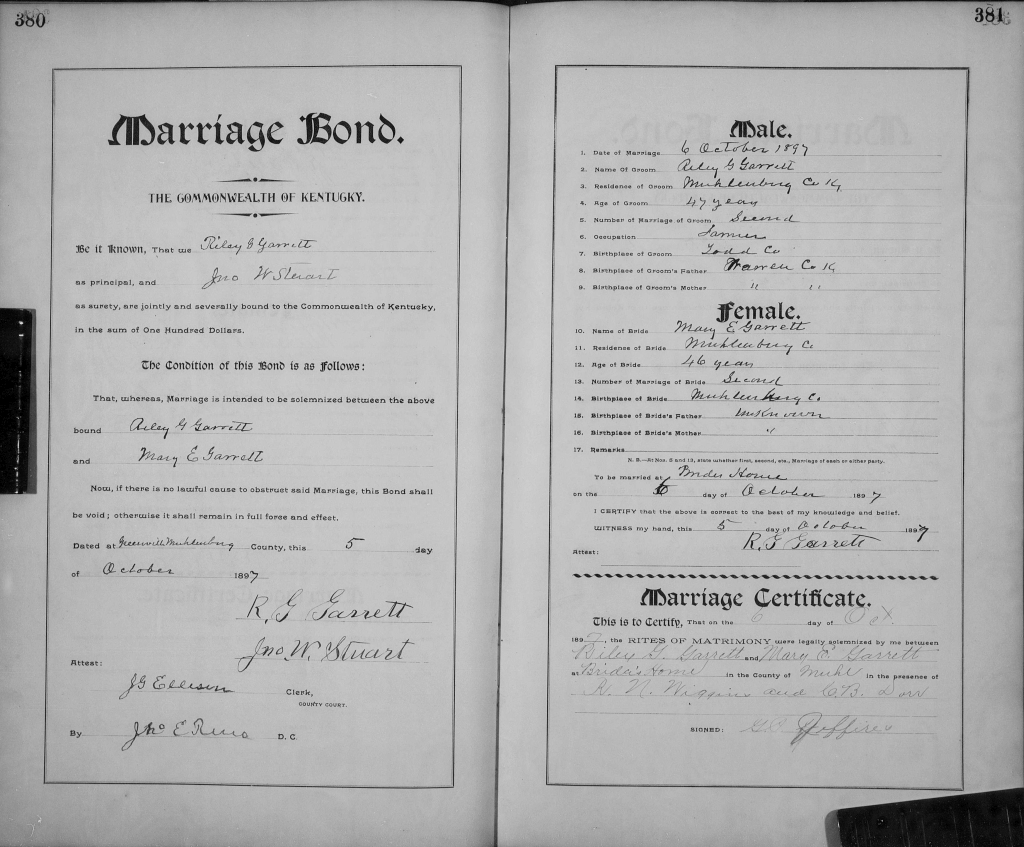 380
Marriage Bond.
THE COMMONWEALTH OF KENTUCKY.
Be it known, That we Riley G Garrett
as principal, and Jno W Stuart
as surety, are jointly and severally bound to the Commonwealth of Kentucky,
in the sum of One Hundred Dollars.
The Condition of this Bond is as Follows:
That, whereas, Marriage is intended to be solemnized between the above
bound Riley G Garrett
and Mary E Garrett
Now, if there is no lawful cause to obstruct said Marriage, this Bond shall
be void; otherwise it shall remain in full force and effect.
Dated at Greenville Muhlenburg County, this 5 day
of October 1897
R. G Garrett
Jno W. Stuart
Attest:
J G Ellison Clerk,
COUNTY COURT.
By Jno E Reno D. C.
381
Male.
1. Date of Marriage 6 October 1897
2. Name Of Groom Riley G Garrett
3. Residence of Groom Muhlenburg Co Ky
4. Age of Groom 47 years
5. Number of Marriage of Groom Second
6. Occupation Farmer
7. Birthplace of Groom Todd Co
8. Birthplace of Groom's Father Warren Co Ky
9. Birthplace of Groom's Mother " "
Female.
10. Name of Bride Mary E Garrett
11. Residence of Bride Muhlenburg Co
12. Age of Bride 46 years
13. Number of Marriage of Bride Second
14. Birthplace of Bride Muhlenburg Co
15. Birthplace of Bride's Father Unknown
16. Birthplace of Bride's Mother "
17. Remarks
N. B.—At Nos. 5 and 13, state whether first, second, etc., Marriage of each or either party.
To be married at Brides Home
on the 6 day of October 1897
I CERTIFY that the above is correct to the best of my knowledge and belief.
WITNESS my hand, this 5 day of October 1897
R. G Garrett
Attest:
Marriage Certificate.
This is to Certify, That on the 6 day of Oct.
1897, the RITES OF MATRIMONY were legally solemnized by me between
Riley G. Garrett and Mary E. Garrett
at Bride's Home in the County of Muhl in the presence of
A. N. Wiggins and C. B. Dorr
SIGNED: